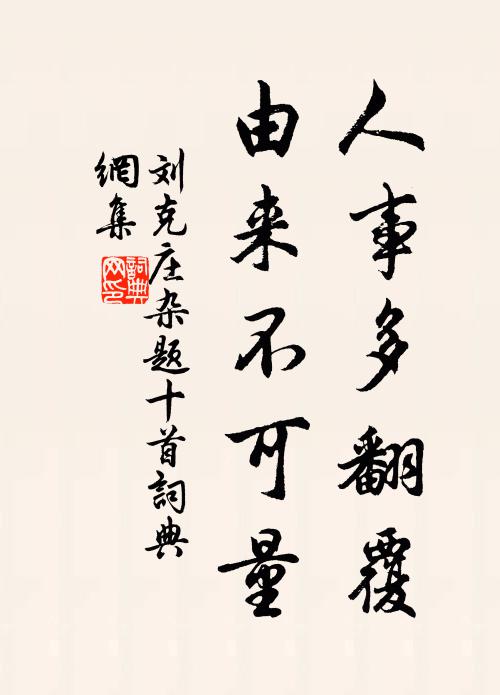 人事多翻覆
由来不可量
刘克庄杂题十首詞典
網集
詞典
网印